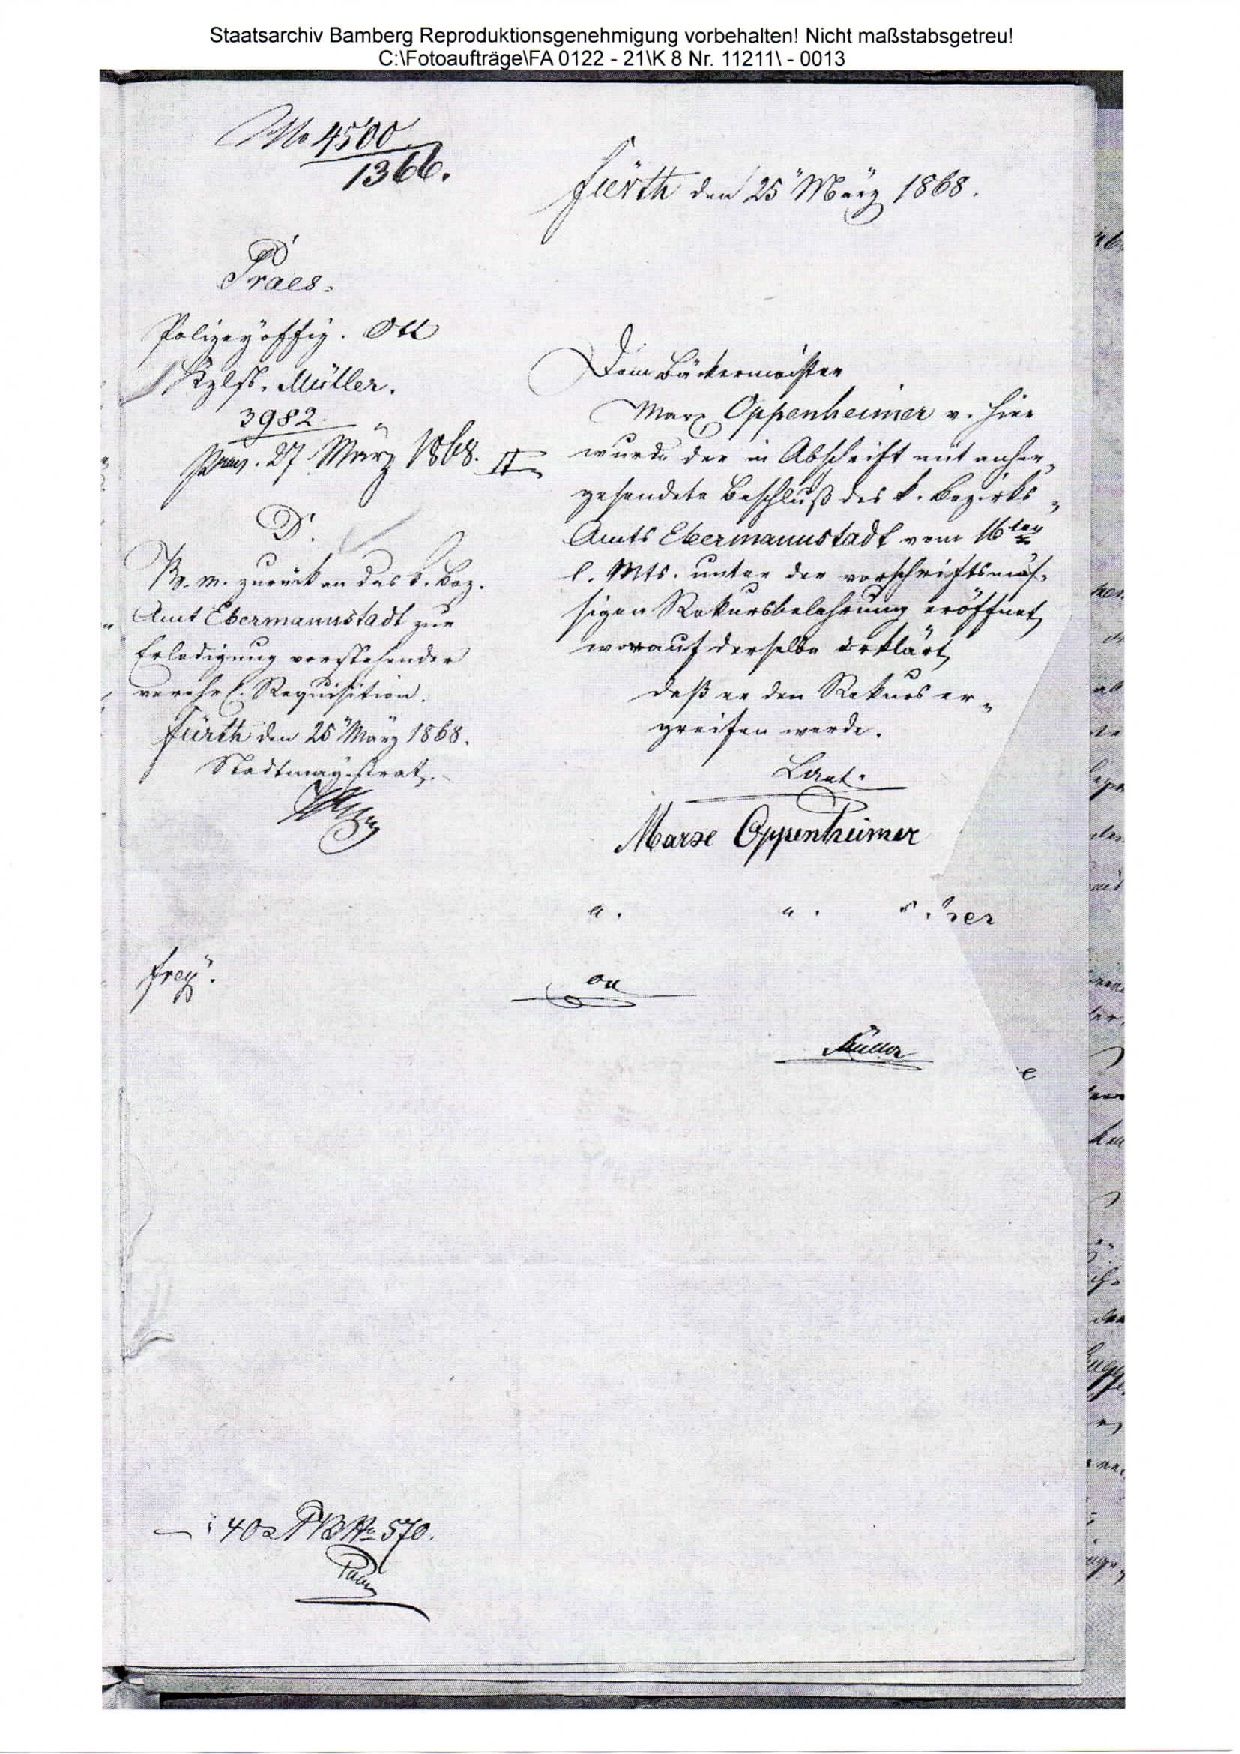 Staatsarchiv Bamberg Reproduktionsgenehmigung vorbehalten! Nicht maßstabsgetreu!
C:\Fotoaufträge\FA 0122 - 21\K 8 Nr. 11211\ - 0013
No 4500
1366.
Fürth den 25 März 1868.
Praes.
Polizeyoffiz. Ott
Kzlst. Müller.
3982
praes. 27 März 1868. II
Dem Bäckermeister
Marx Oppenheimer v. hier
wurde der in Abschrift mit anher„
gesendete Beschluß des k. Bezirks„
Amts Ebermannstadt vom 16ten
l. Mts. unter der vorschriftsmäs„
sigen Rekursbelehrung eröffnet,
worauf derselbe erklärt,
daß er den Rekurs er„
greifen werde.
Laut.
Marxe Oppenheimer
D.
Br. m. zurück an das k. Bez.
Amt Ebermannstadt zur
Erledigung vorstehender
verehrl. Requisition.
Fürth den 25 März 1868.
Stadtmagistrat.
Ott
Müller
40 a No 570.